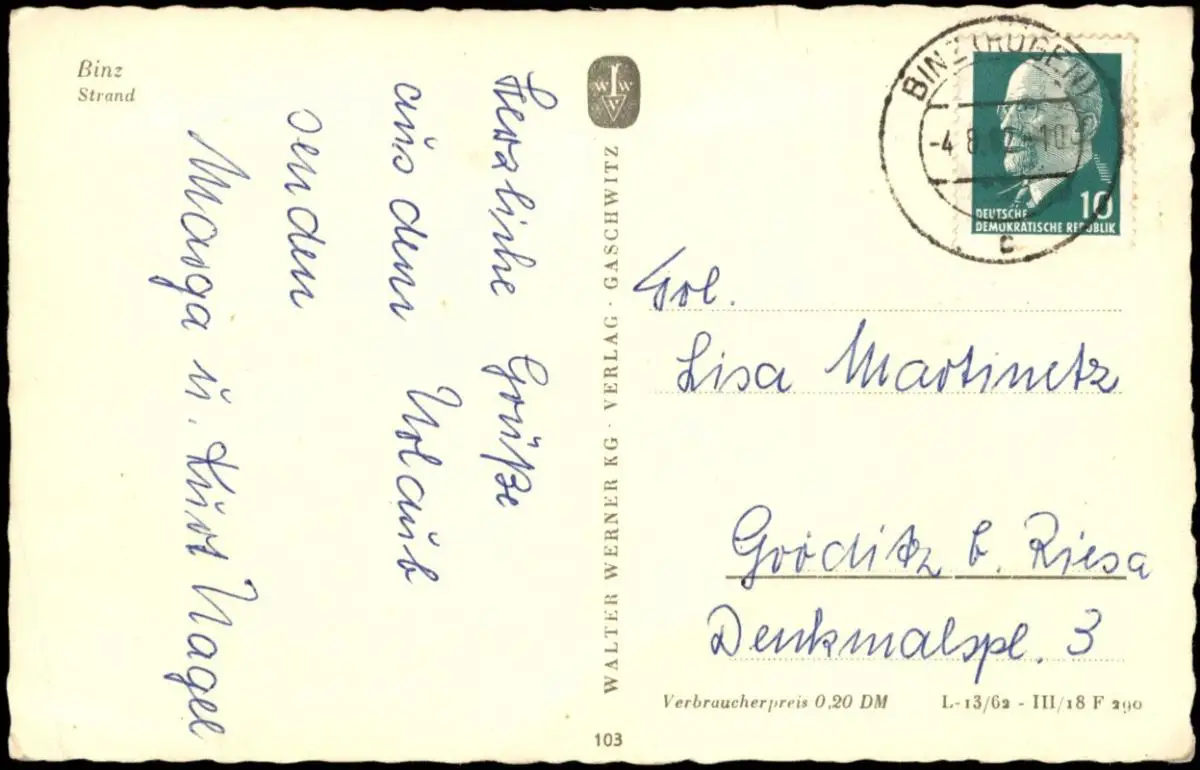 Binz
Strand
Herzliche Grüße
aus dem Urlaub
senden
Marga u. Kurt Nagel
WALTER WERNER KG · VERLAG · GASCHWITZ
BINZ (RÜGEN)
-4.8.62-10
c
10
DEUTSCHE
DEMOKRATISCHE REPUBLIK
Lisa Martinetz
Gröditz b. Riesa
Denkmalspl. 3
Verbraucherpreis 0,20 DM L-13/62 - III/18 F 290
103